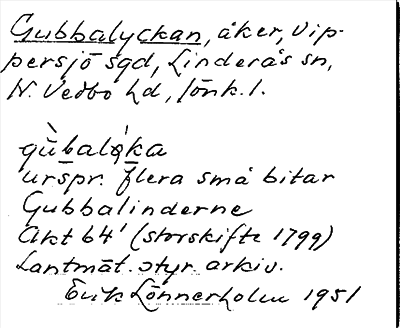 Gubbalyckan, åker, Vip-
persjö sgd, Linderås sn,
N. Vedbo hd, Jönk. l.
gùbalǫ́ka
urspr. flera små bitar
Gubbalinderne
Akt 64' (storskifte 1799)
Lantmät. styr. arkiv.
Erik Lönnerholm 1951